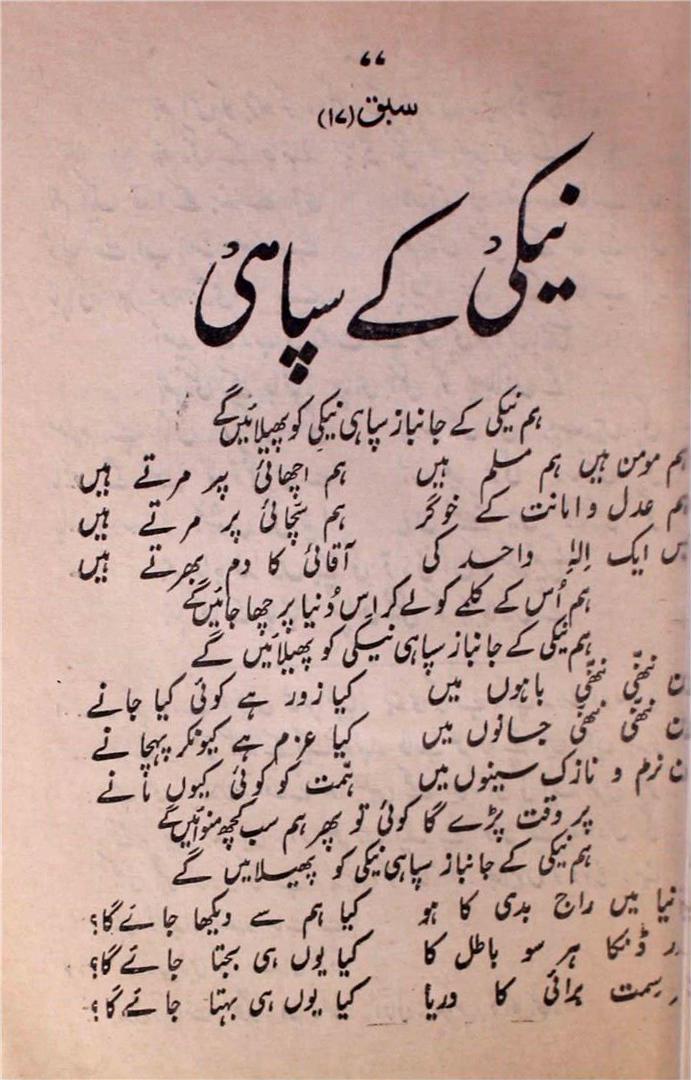 سبق (۱۷)
نیکی کے سپاہی
ہم نیکی کے جانباز سپاہی نیکی کو پھیلائیں گے
ہم مومن ہیں ہم مسلم ہیں ہم اچھائی پر مرتے ہیں
ہم عدل و امانت کے خوگر ہم سچّائی پر مرتے ہیں
ایک اِلٰہِ واحد کی آقائی کا دم بھرتے ہیں
ہم اُس کے کلمے کو لے کر اِس دُنیا پر چھا جائیں گے
ہم نیکی کے جانباز سپاہی نیکی کو پھیلائیں گے
ننھّی ننھّی باہوں میں کیا زور ہے کوئی کیا جانے
ننھّی ننھّی جانوں میں کیا عزم ہے کیونکر پہچانے
نرم و نازک سینوں میں ہمّت کو کوئی کیوں مانے
پر وقت پڑے گا کوئی تو پھر ہم سب کچھ منوائیں گے
ہم نیکی کے جانباز سپاہی نیکی کو پھیلائیں گے
میں راج بدی کا ہو کیا ہم سے دیکھا جائے گا؟
ڈنکا ہر سو باطل کا کیا یوں ہی بجتا جائے گا؟
سمت برائی کا دریا کیا یوں ہی بہتا جائے گا؟